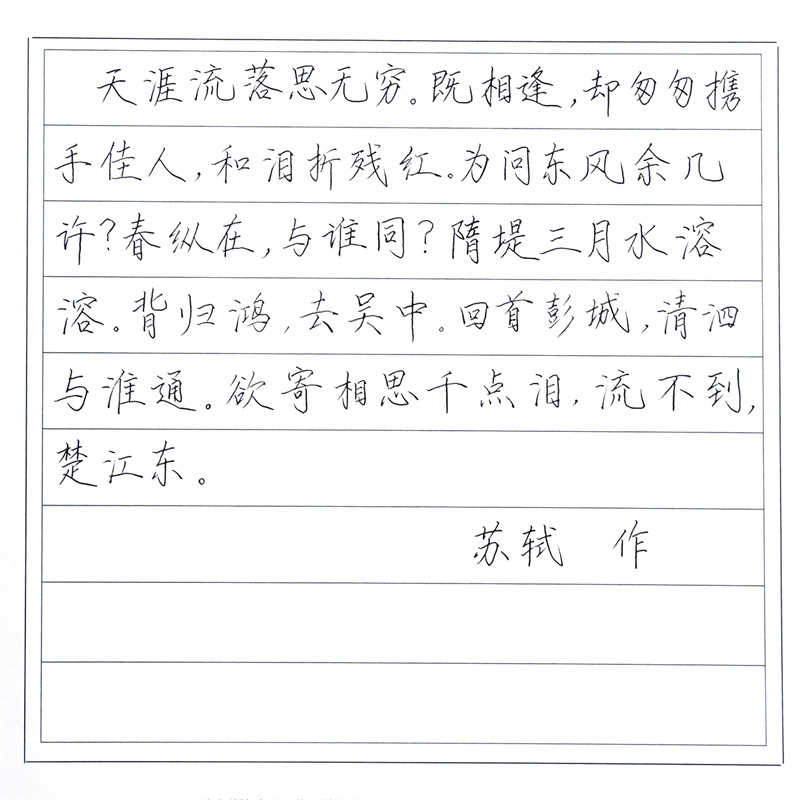 天涯流落思无穷。既相逢,却匆匆携
手佳人,和泪折残红。为问东风余几
许?春纵在,与谁同?隋堤三月水溶
溶。背归鸿,去吴中。回首彭城,清泗
与淮通。欲寄相思千点泪,流不到,
楚江东。
苏轼 作